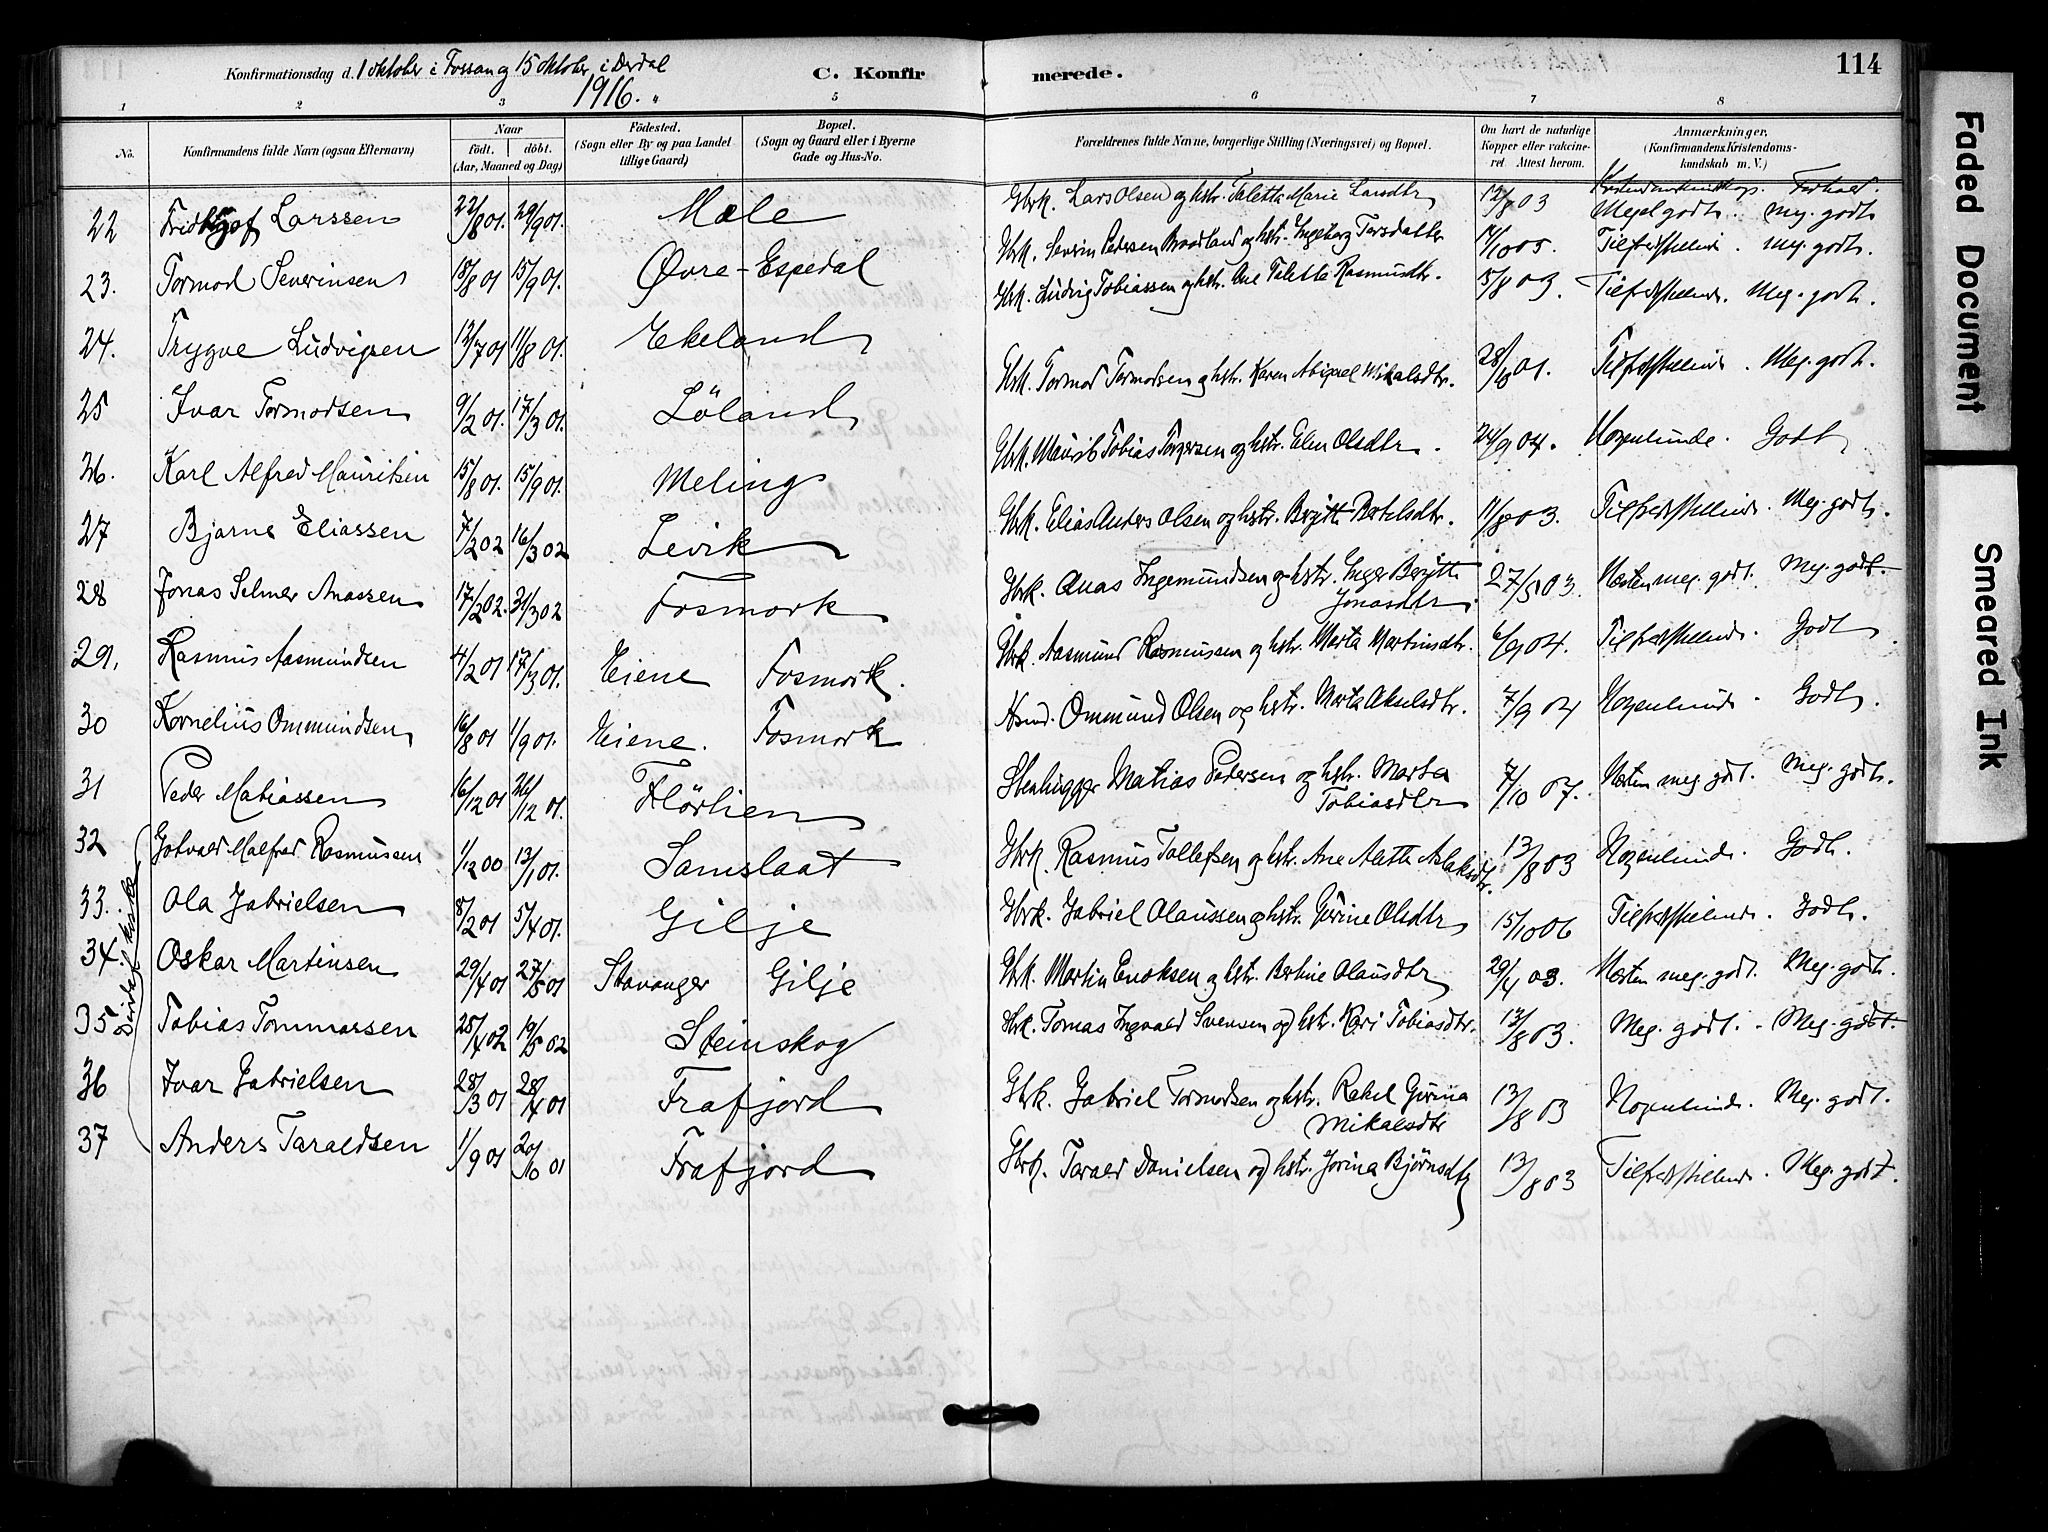 Konfirmationsdag d. 1 oktober i Forsan og 15 oktober i Dirdal 1916. C. Konfirmerede. 114
1 2 3 5 6 7 8
No. Konfirmandens fulde Navn (ogsaa Efternavn) Naar födt. döbt. (Aar, Maaned og Dag) Födested. (Sogn eller By og paa Landet tillige Gaard) Bopæl. (Sogn og Gaard eller i Byerne Gade og Hus-No. Forældrenes fulde Navne, borgerlige Stilling (Næringsvei) og Bopæl. Om havt de naturlige Kopper eller vakcineret. Attest herom. Anmærkninger, (Konfirmandens Kristendomskundskab m. V.)
Kristendomskundskap. Forhold.
22 Larssen 22/8 01. 29/9 01. Mæle Gbrk. Lars Olsen og hstr. Taletta Marie Larsdtr 12/8 03 Meget godt. Meg. godt
23. Tormod Severinsen 18/8 01 15/9 01. Øvre-Espedal Gbrk. Severin Pedersen Braadland og hstr. Ingeborg Tarsdatter 14/10 05. Tilfredsstillende. Meg. godt.
24. Trygve Ludvigsen 12/7 01 11/8 01. Ekeland Gbrk. Ludvig Tobiassen og hstr. Ane Taletta Rasmusdtr. 15/8 03. Tilfredsstillende. Meg. godt.
25 Ivar Tormodsen 9/2 01. 17/3 01. Löland Gbrk. Tormod Tormodsen og hstr. Karen Abigael Mikalsdtr. 01. Tilfredsstillende. Meg. godt.
26. Karl Alfred Mauritsen 15/8 01. 15/9 01. Meling Gbrk. Maurits Tobias Torgersen og hstr. Elen Olsdtr. 24/9 04. Nogenlunde. Godt
27 Bjarne Eliassen 7/2 02 16/3 02 Levik Gbrk. Elias Anders Olsen og hstr. Berthe Bertelsdtr. 11/8 03. Tilfredsstillende. Meg. godt.
28 Jonas Selmer Anassen 17/2 02. 31/3 02 Fosmork Gbrk. Anas Ingemundsen og hstr. Inger Berthe Jonasdtr. 27/5 03. Næsten meg. godt. Meg. godt.
29. Rasmus Aasmundsen 4/2 01 17/3 01. Eiene Fosmork. Gbrk. Aasmund Rasmussen og hstr. Marta Martinsdtr. 6/9 04. Tilfredsstillende. Godt
30 Kornelius Ommundsen 16/8 01 1/9 01. Eiene. Fosmork Ommund Olsen og hstr. Marta Akselsdtr. 7/9 04 Nogenlunde. Godt.
31 Peder Matiassen 16/12 01 26/12 01. Flörlien Stenhugger Matias Pedersen og hstr. Marta Tobiasdtr 7/10 07. Næsten meg. godt. Meg. godt.
Dirdal kirke
32 Gotvald Malfred Rasmussen 1/12 00 13/1 01. Samslaat Gbrk. Rasmus Tollefsen og hstr. Ane Alette Aslaksdtr. 13/8 03 Nogenlunde. Godt.
33. Ola Gabrielsen 8/2 01 5/4 01. Gilje Gbrk. Gabriel Olaussen og hstr. Gurine Olsdtr 15/10 06 Tilfredsstillende. Godt.
34. Oskar Martinsen 29/4 01 27/5 01 Stavanger Gilje Gbrk. Martin Enoksen og hstr. Bertine Olausdtr 29/4 03. Næsten meg. godt. Meg. godt.
35 Tobias Tommassen 25/4 02 19/5 02 Steinskog Gbrk. Tomas Ingvald Svensen og hstr. Kari Tobiasdtr. 13/8 03. Meg. godt. Meg. godt.
36 Ivar Gabrielsen 28/3 01 28/4 01 Frafjord Gbrk. Gabriel Tormodsen og hstr. Rakel Gurina Mikalsdtr 13/8 03 Nogenlunde. Meg. godt.
37 Anders Taraldsen 1/9 01 20/10 01 Frafjord Gbrk. Tarald Danielsen og hstr. Jorina Bjørnsdtr 13/8 03 Tilfredsstillende. Meg. godt.
Faded Document
Smeared Ink